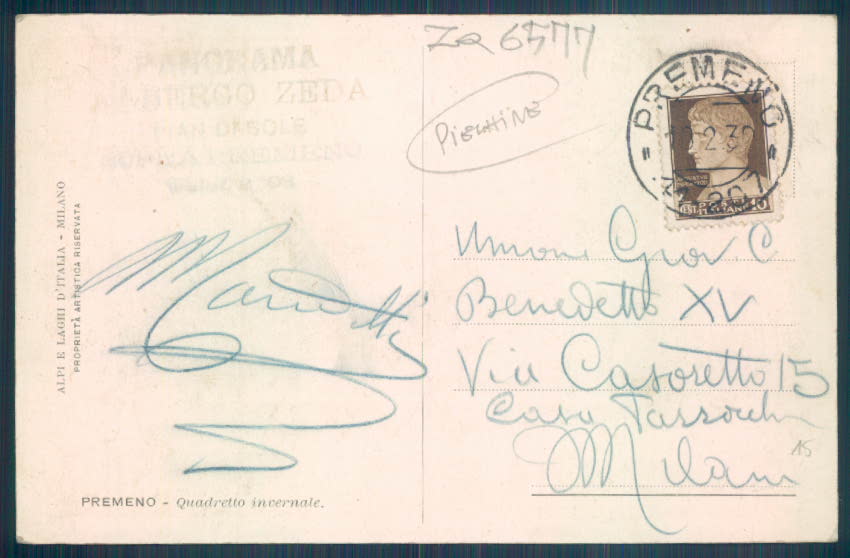 Za 6577
PIECHINE
PANORAMA
ALBERGO ZEDA
PIAN DI SOLE
SOPRA PREMENO
PREMENO
2.32
ALPI E LAGHI D'ITALIA - MILANO
PROPRIETÀ ARTISTICA RISERVATA
Unione Giov. C
Benedetto XV
Via Casoretto 15
Casa
Milano
15
PREMENO - Quadretto invernale.